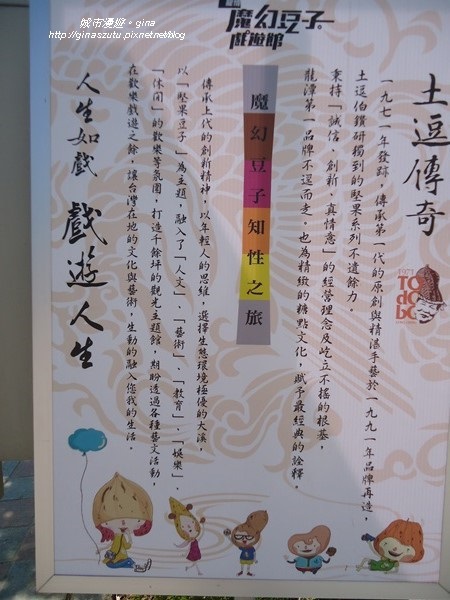 城市漫遊。gina
http://ginaszutu.pixnet.net/blog
魔幻豆子
戲遊館
土逗傳奇
一九七一年發跡，傳承第一代的原創與精湛手藝於一九九一年品牌再造，
土逗伯鑽研獨到的堅果系列不遺餘力。
秉持「誠信、創新、真情意」的經營理念及屹立不搖的根基，
龍潭第一品牌不逕而走．也為精緻的糖點文化，賦予最經典的詮釋。
1971
TO
dobo
魔幻豆子知性之旅
傳承上代的創新精神，以年輕人的思維，選擇生態環境極優的大溪，
以「堅果豆子」為主題，融入了「人文」、「藝術」、「教育」、「娛樂」、
「休閒」的歡樂等氛圍，打造千餘坪的觀光主題館，期盼透過各種藝文活動，
在歡樂戲遊之餘，讓台灣在地的文化與藝術，生動的融入您我的生活。
人生如戲 戲遊人生